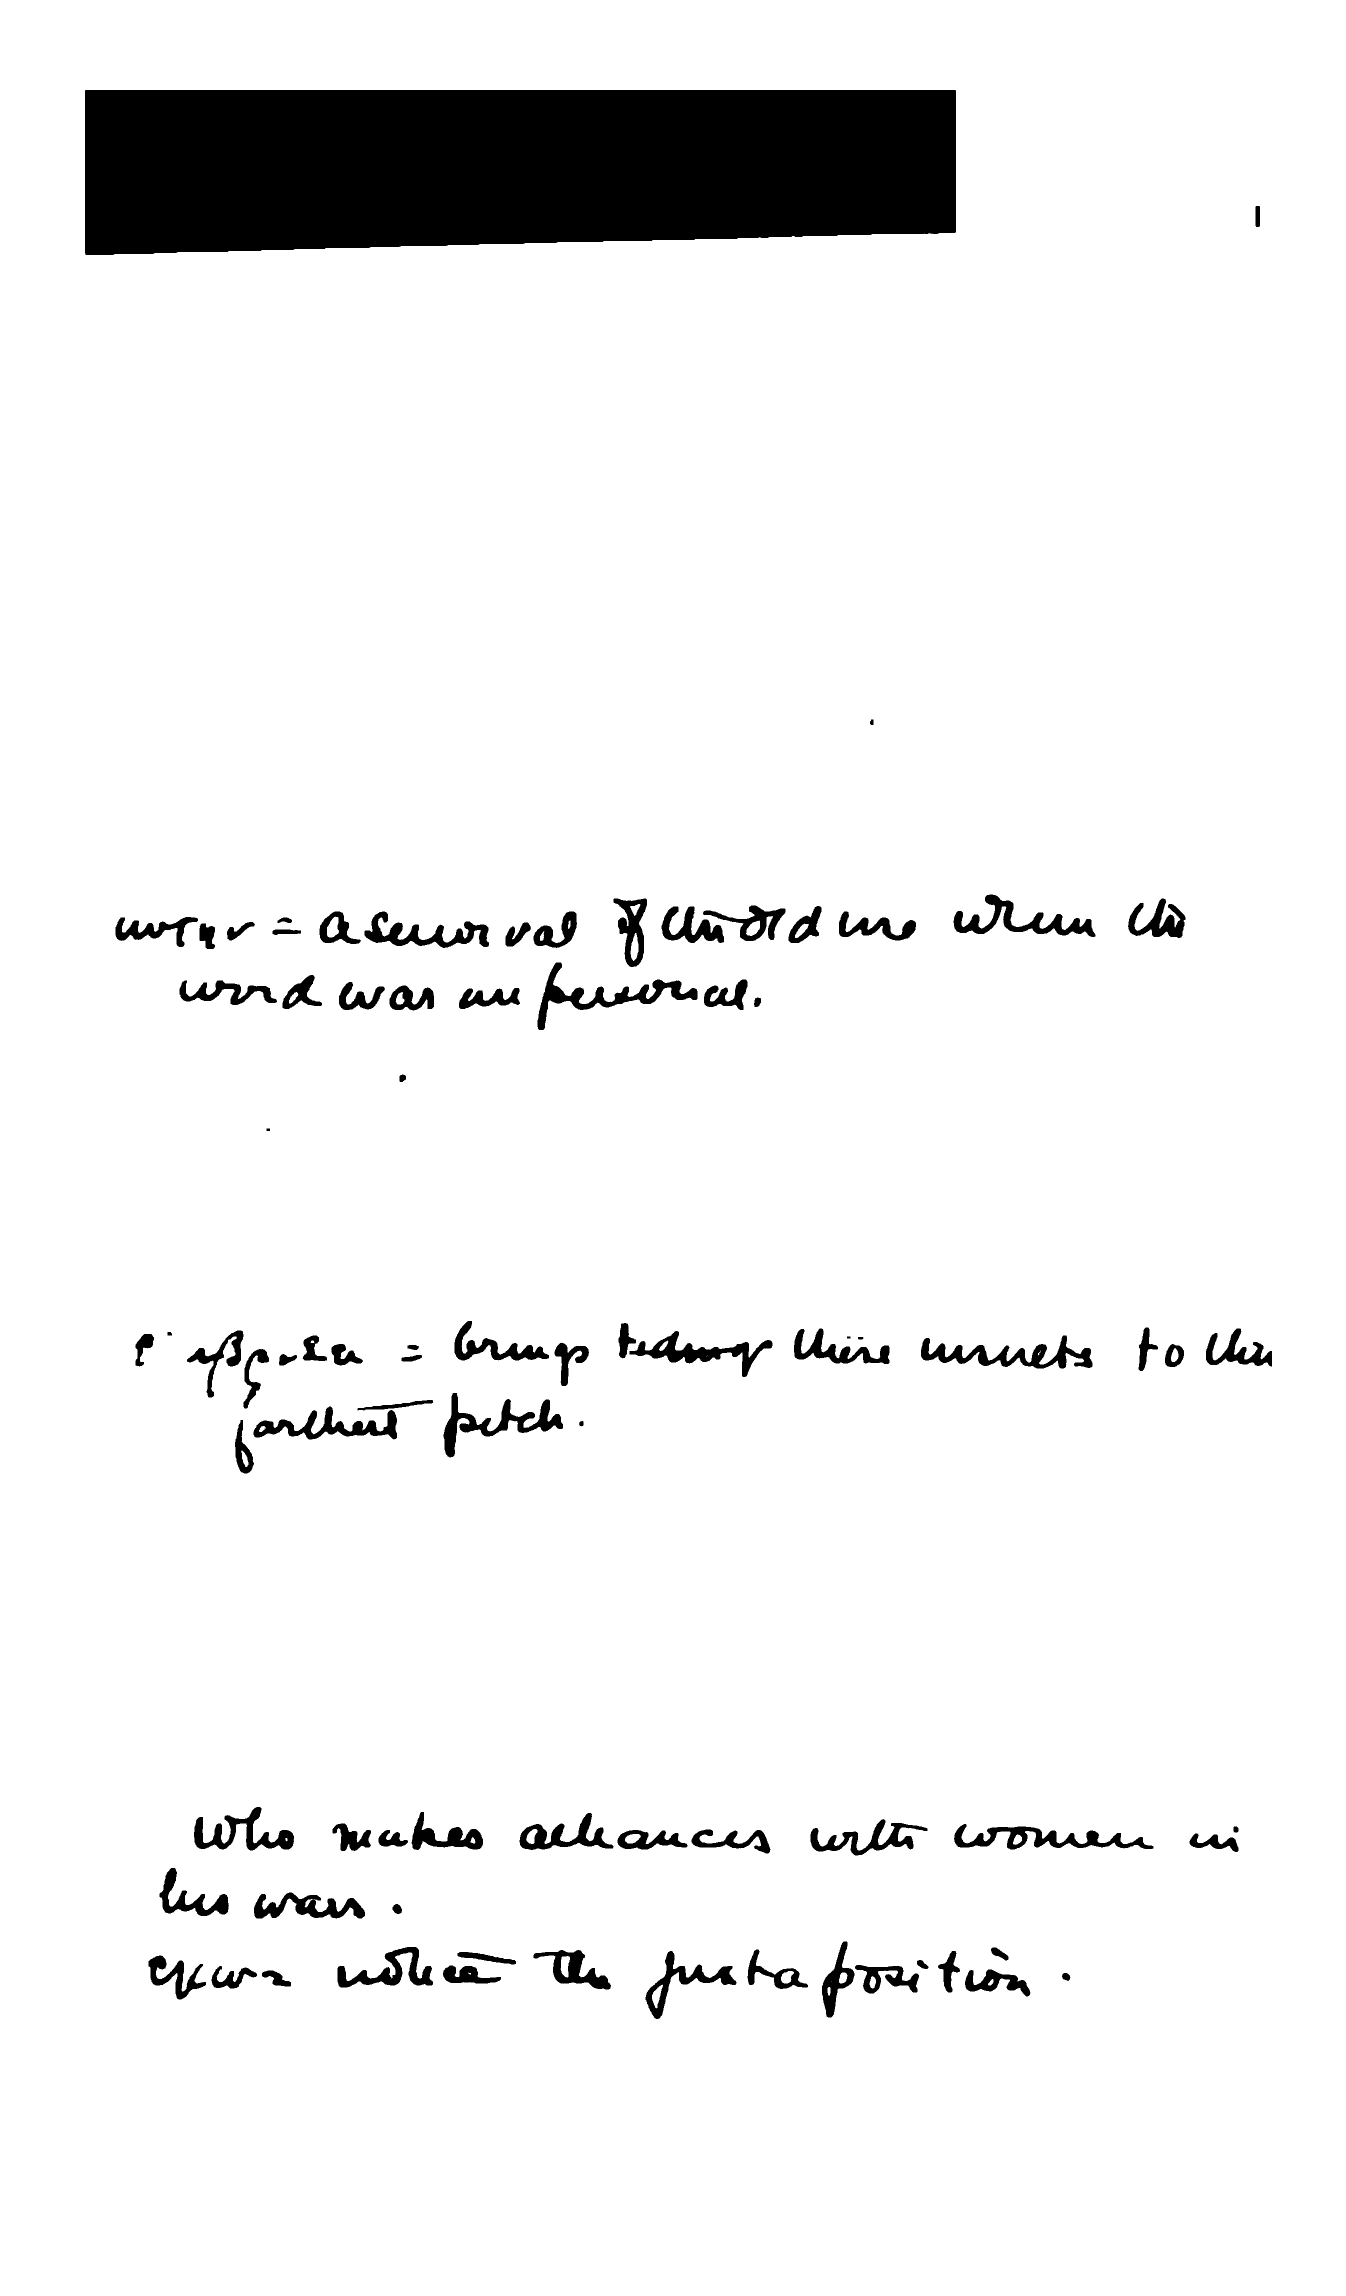 = a survival of the old use when the
word was impersonal.
= brings these insults to their
farthest pitch.
Who makes alliances with women in
his wars.
notice the juxtaposition.